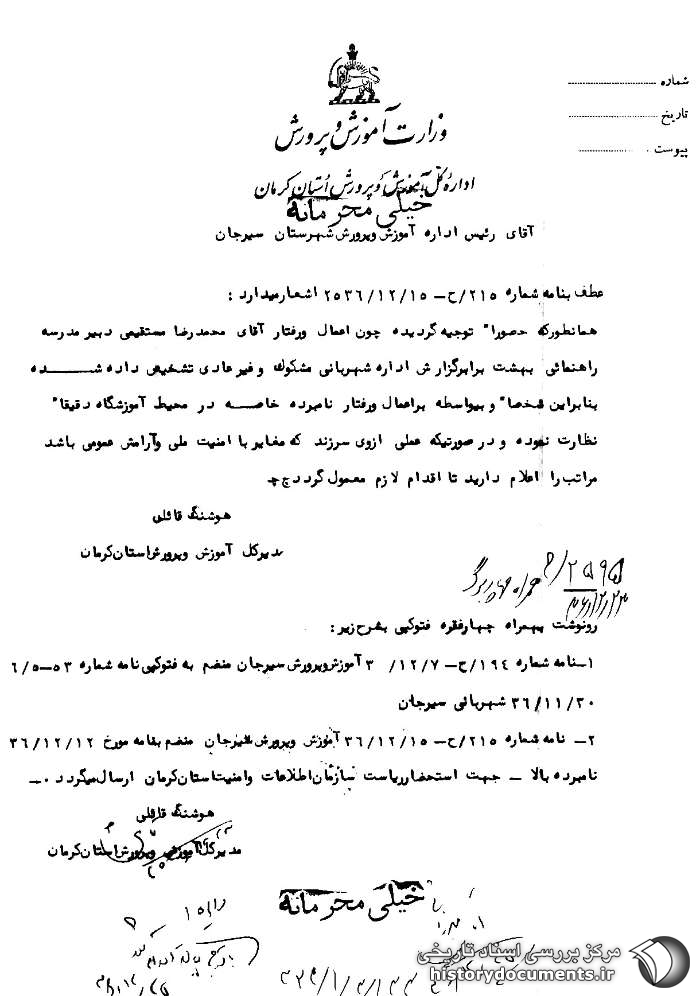 شماره
تاریخ
پیوست
وزارت آموزش و پرورش
ادارهٔ کل آموزش و پرورش استان کرمان
خیلی محرمانه
آقای رئیس اداره آموزش وپرورش شهرستان سیرجان
عطف بنامه شماره ۲۱۵/ح - ۲۵۳۶/۱۲/۱۵ اشعار میدارد :
همانطورکه حضورا" توجیه گردیده چون اعمال ورفتار آقای محمدرضا مستقیمی دبیر مدرسه
راهنمائی بهشت برابرگزارش اداره شهربانی مشکوک و غیرعادی تشخیص داده شده
بنابراین شخصا" و بیواسطه براعمال ورفتار نامبرده خاصه در محیط آموزشگاه دقیقا"
نظارت نموده و در صورتیکه عملی ازوی سرزند که مغایر با امنیت ملی وآرامش عمومی باشد
مراتب را اعلام دارید تا اقدام لازم معمول گردد
هوشنگ قائلی
مدیرکل آموزش وپرورش استان کرمان
۲۵۹۵/م
۳۶/۱۲/۲۳
رونوشت بهمراه چهارفقره فتوکپی بشرح زیر :
۱-نامه شماره ۱۹٤/ح - ۱۲/۷/ ۳ آموزش وپرورش سیرجان منضم به فتوکپی نامه شماره ۵۳-۶/۵
۳۶/۱۱/۳۰ شهربانی سیرجان
۲- نامه شماره ۲۱۵/ح - ۳۶/۱۲/۱۵ آموزش وپرورش سیرجان منضم بنامه مورخ ۳۶/۱۲/۱۲
نامبرده بالا - جهت استحضار ریاست سازمان اطلاعات وامنیت استان کرمان ارسال میگردد ۰-
هوشنگ قائلی
مدیرکل آموزش وپرورش استان کرمان
خیلی محرمانه
مرکز بررسی اسناد تاریخی
historydocuments.ir